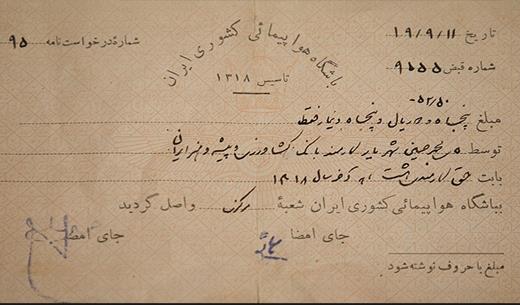 تاریخ ۱۹/۹/۱۱
شمارهٔ درخواست نامه ۹۵
باشگاه هواپیمائی کشوری ایران
تاسیس ۱۳۱۸
شماره قبض ۹۵۵۵
۵۲/۵۰-
مبلغ پنجاه و دو ریال و پنجاه دینار فقط
توسط محمد حسین شهریار کارمند بانک کشاورزی و پیشه و هنر ایران
بابت حق کارمندی سال ۱۳۱۸
بباشگاه هواپیمائی کشوری ایران شعبهٔ مرکز واصل گردید
جای امضا
جای امضا
مبلغ با حروف نوشته شود